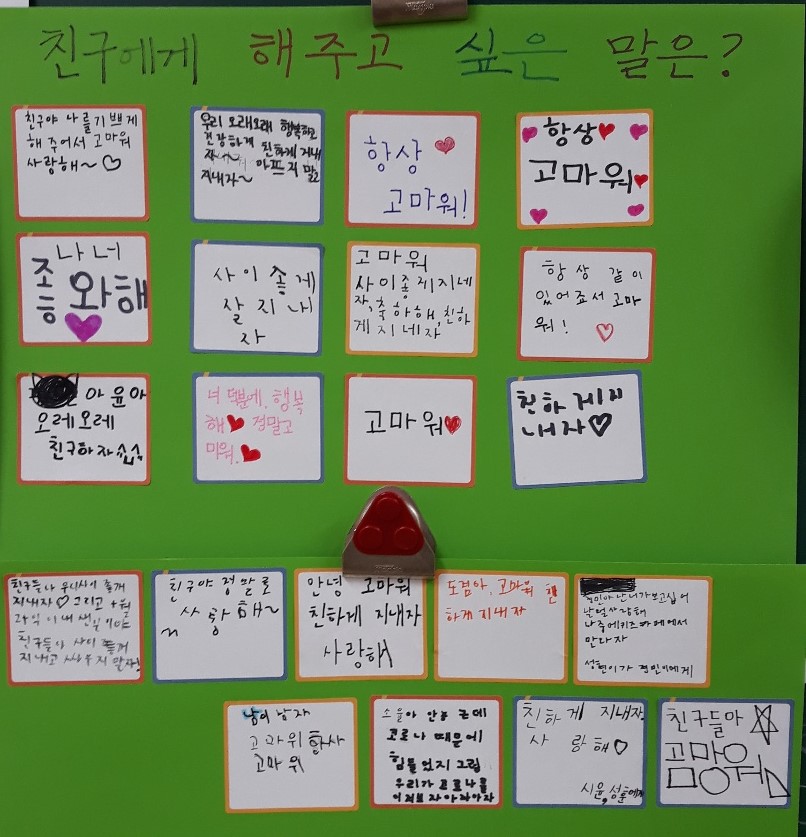 친구에게 해주고 싶은 말은?
친구야 나를 기쁘게
해 주어서 고마워
사랑해~
우리 오래오래 행복하고
건강하게 친하게 지내
자~ 아프지 말고
지내자~
항상
고마워!
항상
고마워
나 너
좋
와해
사이 좋게
잘 지내
자
고마워
사이좋게지네
자, 축하해, 친하
게지네자
항상 같이
있어죠서 고마
워!
아 윤아
오레오레
친구하자
너 덕분에, 행복
해 정말고
마워.
고마워
친하게지
내자
친구들나 우리사이 좋게
지내자 그리고
친구들아 사이 좋게
지내고 싸우지 말자!
친구야 정말로
사랑해~
안녕 고마워
친하게 지내자
사랑해
도겸아, 고마워 친
하게지내자
난너가보고십어
난널사랑해
나중에키즈카페에서
만나자
성현이가 경민이에게
남자
고마워 항사
고마워
소율아 안농 근데
코로나 때문에
힘들었지 그럼
우리가 코로나를
친하게 지내자.
사랑해
시윤, 성훈에게
친구들아
고마워